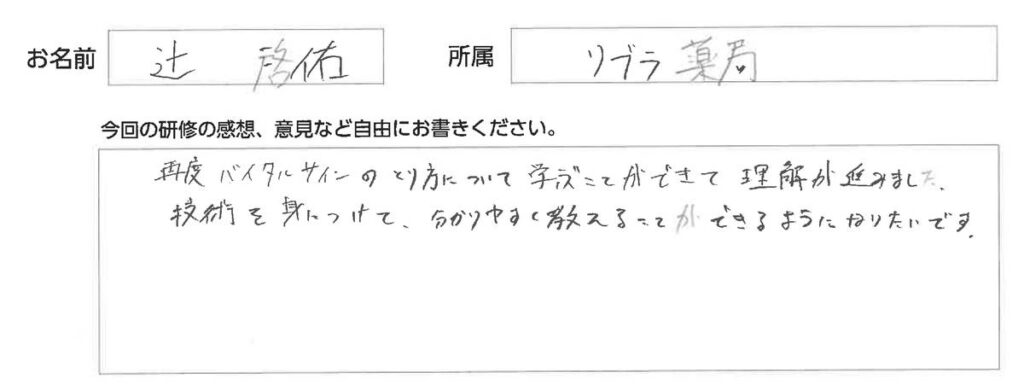 お名前 辻 啓佑 所属 リブラ薬局
今回の研修の感想、意見など自由にお書きください。
再度バイタルサインのとり方について学ぶことができて理解が進みました。
技術を身につけて、分かりやすく教えることができるようになりたいです。